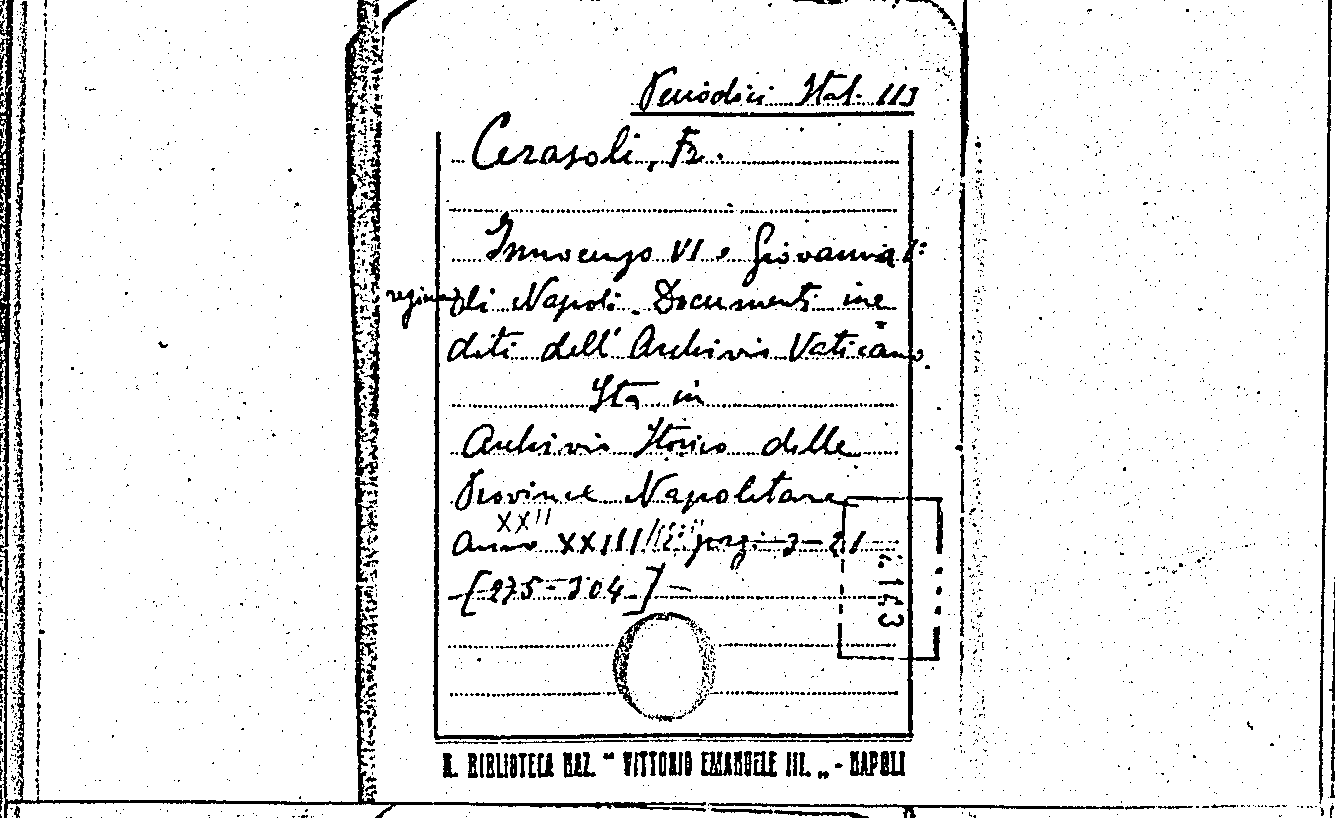 Periodici Ital. 113
Cerasoli, Fr.
Innocenzo VI e Giovanna I:
regina di Napoli. Documenti ine
diti dell' Archivio Vaticano.
Sta in
Archivio Storico delle
Province Napoletane
XXII
Anno XXIII pag. 3-21
[275-304]
143
R. BIBLIOTECA NAZ. "VITTORIO EMANUELE III." - NAPOLI